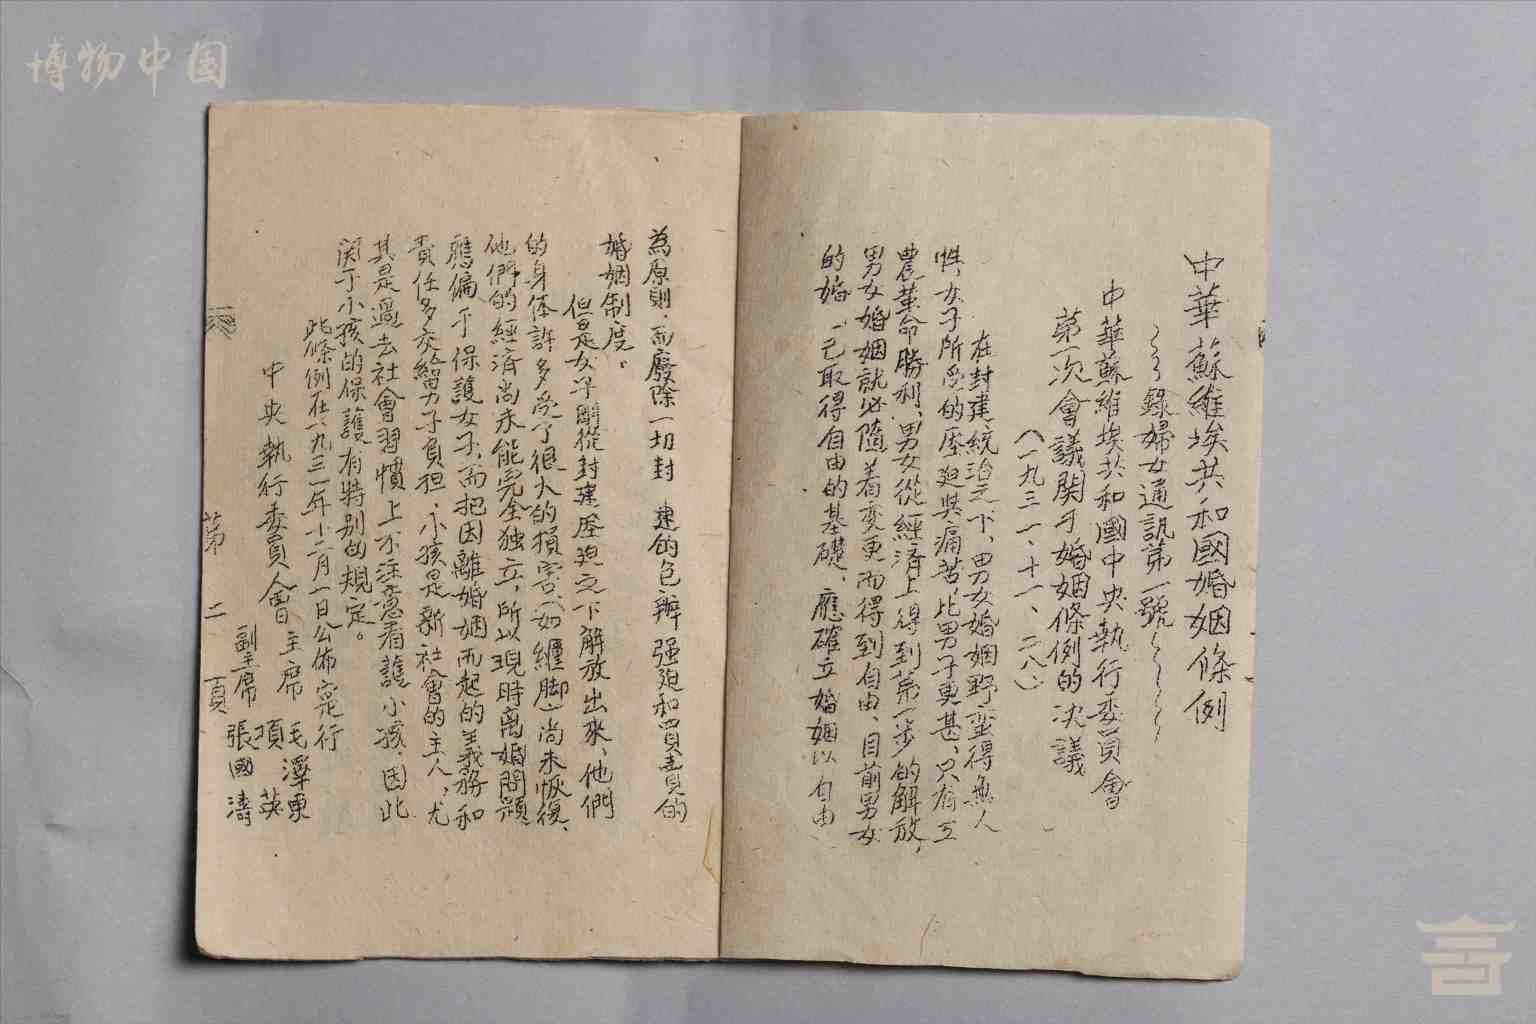 博物中国
中華蘇維埃共和國婚姻條例
錄婦女通訊第一號
中華蘇維埃共和國中央執行委員會
第一次會議関于婚姻條例的决議
（一九三一、十一、二八）
在封建統治之下、男女婚姻野蛮得無人
性、女子所受的压迫與痛苦、比男子更甚、只有工
農革命勝利、男女從經済上得到第一步的解放，
男女婚姻就必隨着変更而得到自由、目前男女
的婚　已取得自由的基礎、應確立婚姻以自由
為原則、而廢除一切封建的包辦强迫和買賣的
婚姻制度。
但是女子剛從封建压迫之下解放出來、他們
的身体許多受了很大的損害（如纏脚）尚未恢復、
他們的經済尚未能完全独立，所以現時离婚問題
應偏于保護女子、而把因離婚姻而起的義務和
責任多交給男子負担、小孩是新社會的主人，尤
其是過去社會習慣上不注意看護小孩、因此
関于小孩的保護有特别的規定。
此條例在一九三一年十二月一日公佈寔行
中央執行委員會主席 毛澤東
副主席 項英
張國濤
第二頁